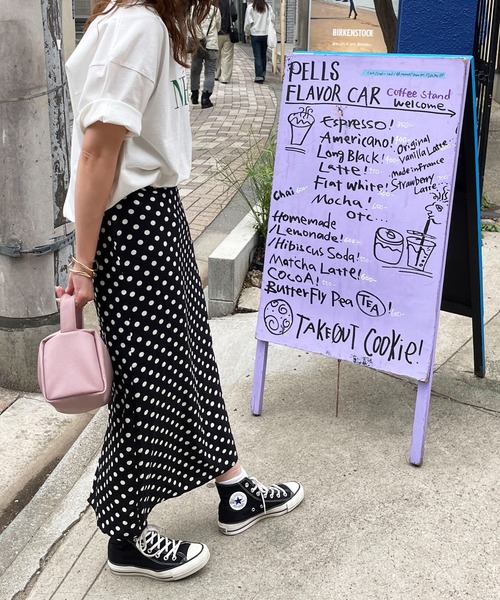 BIRKENSTOCK
PELLS
FLAVOR CAR
Coffee Stand
Welcome
Espresso!
Americano!
Long Black!
Latte!
Flat White!
Mocha!
etc...
Original
Vanilla Latte
made in France
Strawberry
Latte...
Chai
Homemade
/Lemonade!
/Hibiscus Soda!
Matcha Latte!
COCOA!
Butterfly Pea TEA!
TAKEOUT COOKiE!